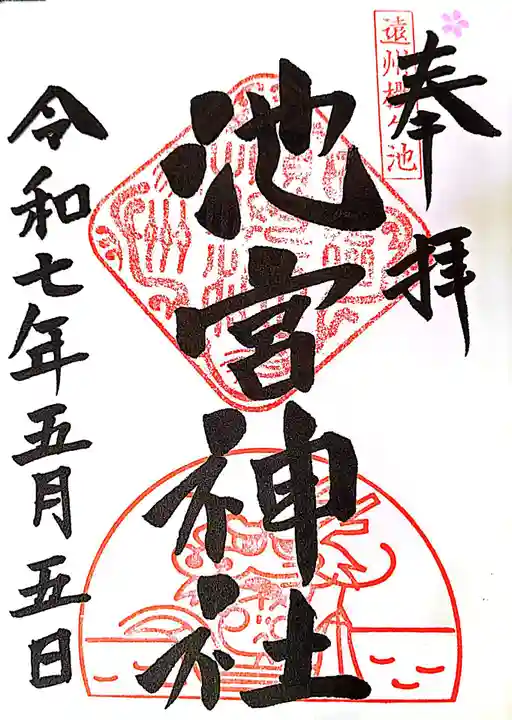 奉拝
遠州桜ケ池
池宮神社
令和七年五月五日